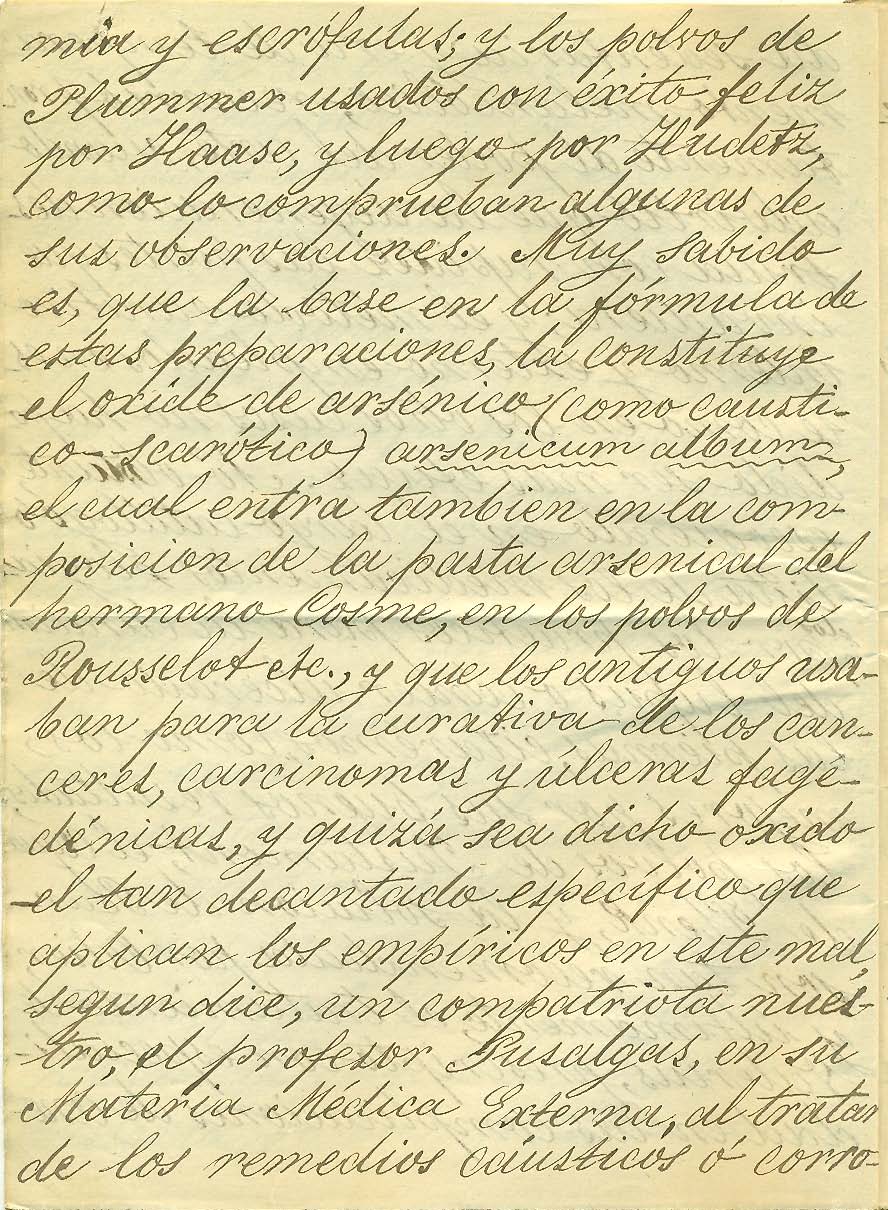 mia y escrófulas; y los polvos de
Plummer usados con éxito feliz
por Haase, y luego por Hudetz,
como lo comprueban algunas de
sus observaciones. Muy sabido
es, que la base en la fórmula de
estas preparaciones, la constituye
el oxide de arsénico (como causti-
co-scarótico) arsenicum album,
el cual entra tambien en la com-
posicion de la pasta arsenical del
hermano Cosme, en los polvos de
Rousselot etc., y que los antiguos usa-
ban para la curativa de los can-
ceres, carcinomas y úlceras fage-
dénicas, y quizá sea dicho oxido
el tan decantado específico que
aplican los empíricos en este mal,
segun dice, un compatriota nues-
tro, el profesor Pusalgas, en su
Materia Médica Externa, al tratar
de los remedios cáusticos ó corro-